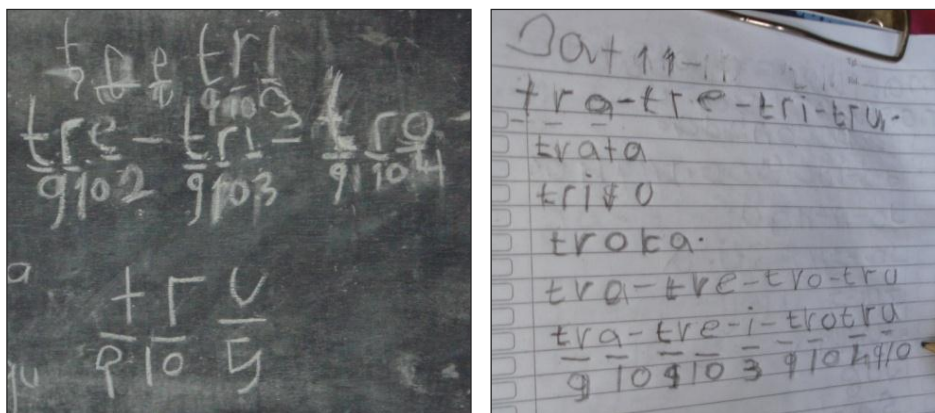 t r e tri
9 10
tre - tri - tro
9 10 2 9 10 3 9 10 4
a
t r u
9 10 5
tra-tre-tri-tru.
trata
troka.
tra-tre-tro-tru
tra-tre-i-trotru
9 10 9 10 3 9 10 4 9 10